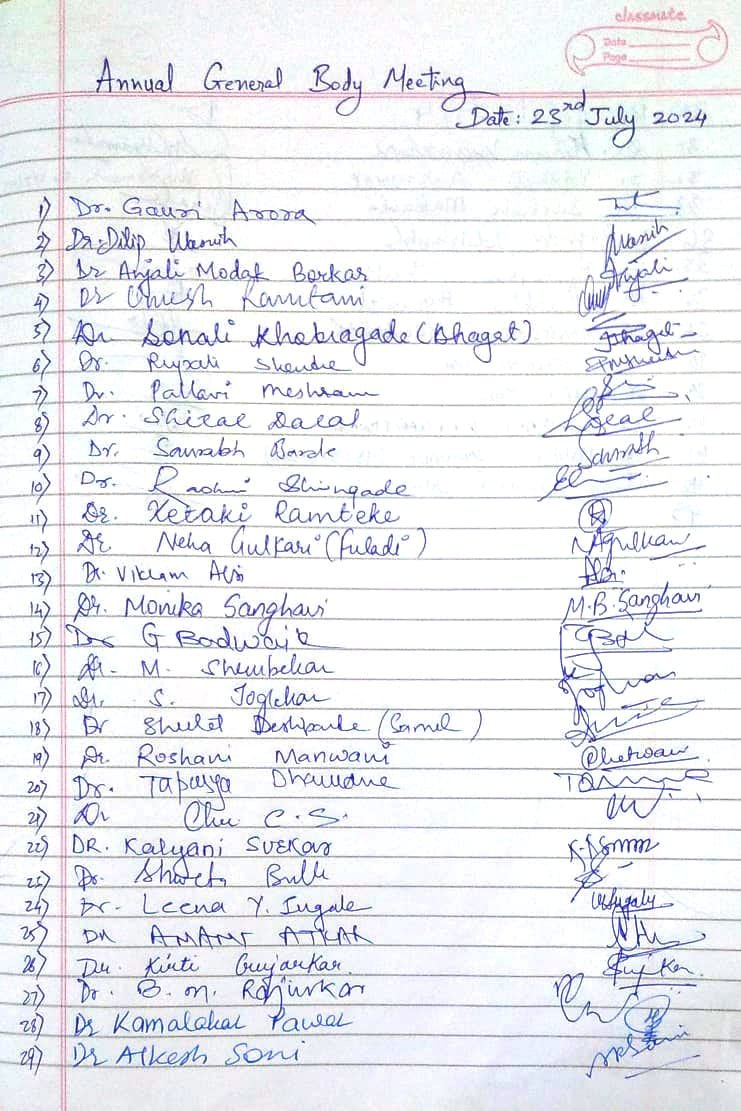 classmate
Date
Page
Annual General Body Meeting
Date: 23rd July 2024
1) Dr. Gauri Arora
2) Dr. Dilip Wasnik Wasnik
3) Dr Anjali Modak Borkar Anjali
4) Dr Umesh Ramtani
5) Dr Sonali Khobragade (Bhagat) Bhagat
6) Dr. Rupali Shende
7) Dr. Pallavi Meshram
8) Dr. Shital Dalal Dalal
9) Dr. Saurabh Barde Saurabh
10) Dr. Rashmi Shingade
11) Dr. Ketaki Ramteke
12) Dr. Neha Gulkari (Fuladi) NAgulkari
13) Dr. Vikram Alsi Alsi
14) Dr. Monika Sanghavi M.B. Sanghavi
15) Dr G Badwaik
16) Dr. M. Shembekar
17) Dr. S. Joglekar
18) Dr Sheetal Deshpande (Samel)
19) Dr. Roshani Manwani
20) Dr. Tapasya Dhamdhe
21) Dr C.S.
22) DR. Kalyani Surkar
23) Dr. Shweta
24) Dr. Leena Y. Ingale
25) DR ANANT ATKAR
26) Dr. Kirti Gujarkar. Gujarkar.
27) Dr. B. M. Rajurkar
28) Dr Kamalakar Pawar
29) Dr Alkesh Soni